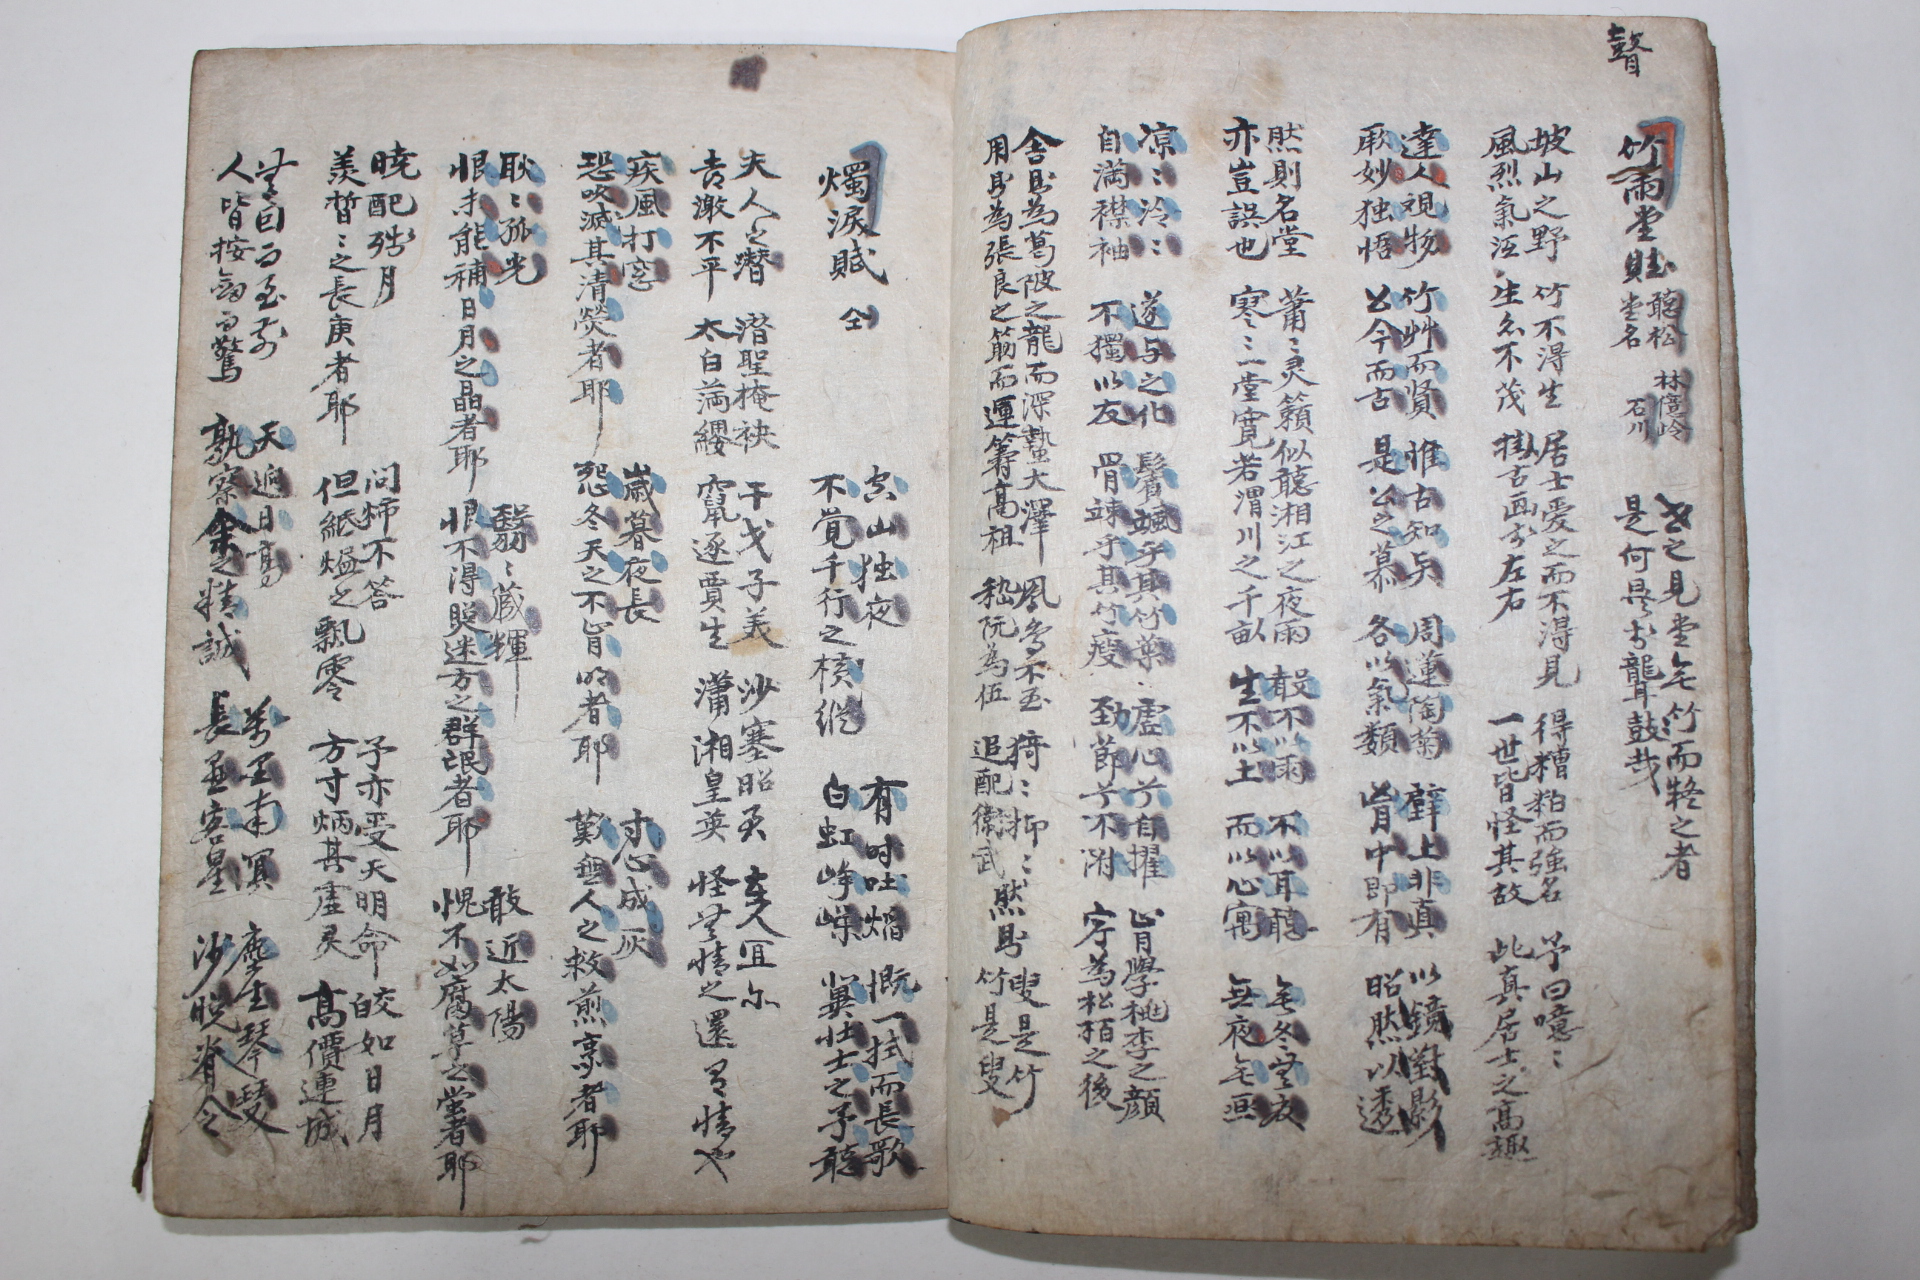 瞽
竹雨堂賦 聽松堂名 林億岭 石川
世之見堂無竹而
是何異於聾鼓哉
坡山之野 竹不得生 居士愛之而不得見 得糟粕而強名 予曰噫噫
風烈氣 生亦不茂 掛古画於左右 一世皆怪其故 此真居士之高趣
達人視物 竹艸而賢 惟古知与 周蓮陶菊 壁上非真 以鏡對影
取妙独悟 公今而古 是公之慕 各以氣類 胷中即有 昭然以透
然則名堂 蕭蕭灵籟似聽湘江之夜雨 殺不以雨 不以耳聽 無冬無夜
亦豈誤也 寒寒一堂寛若渭川之千畝 生不以土 而以心寓 無夜無
凉凉冷冷 遂与之化 鬢颯乎其竹葉 虛心兮自擢 肯學桃李之顔
自滿襟袖 不獨以友 骨竦乎其竹瘦 劲節兮不附 字為松栢之後
舍則為葛陂之龍而深蟄大澤 鳳鳥不至 猗猗抑抑 叟是竹
用則為張良之筯而運籌髙祖 嵇阮為伍 追配衛武 然則竹是叟
燭淚賦 仝
空山独夜 有时吐焰 慨一拭而長歌
不覚千行之橫縱 白虹崢嶸 冀壮士之予聽
夫人之 潜聖掩袂 干戈子美 沙塞昭君 宜尔
去激不平 太白 竄逐賈生 瀟湘皇英 怪無情之還有情也
疾風打窓 歲暮夜長 寸心成灰
恐吹滅其清熒者耶 怨冬天之不肯明者耶 歎無人之救煎烹者耶
耿耿孤光 翳翳藏輝 敢近太陽
恨未能補日月之晶者耶 恨不得照迷方之群氓者耶 愧不如腐草之螢者耶
暁配殘月 问姊不答 予亦受天明命 皎如日月
羡晢晢之長庚者耶 但紙燼之飄零 方寸炳其虛灵 髙價連城
無自而至前 天逈日高 万里南冥 塵生琴瑟
人皆按劔而驚 孰察余之精誠 長 客星 沙晚脊令